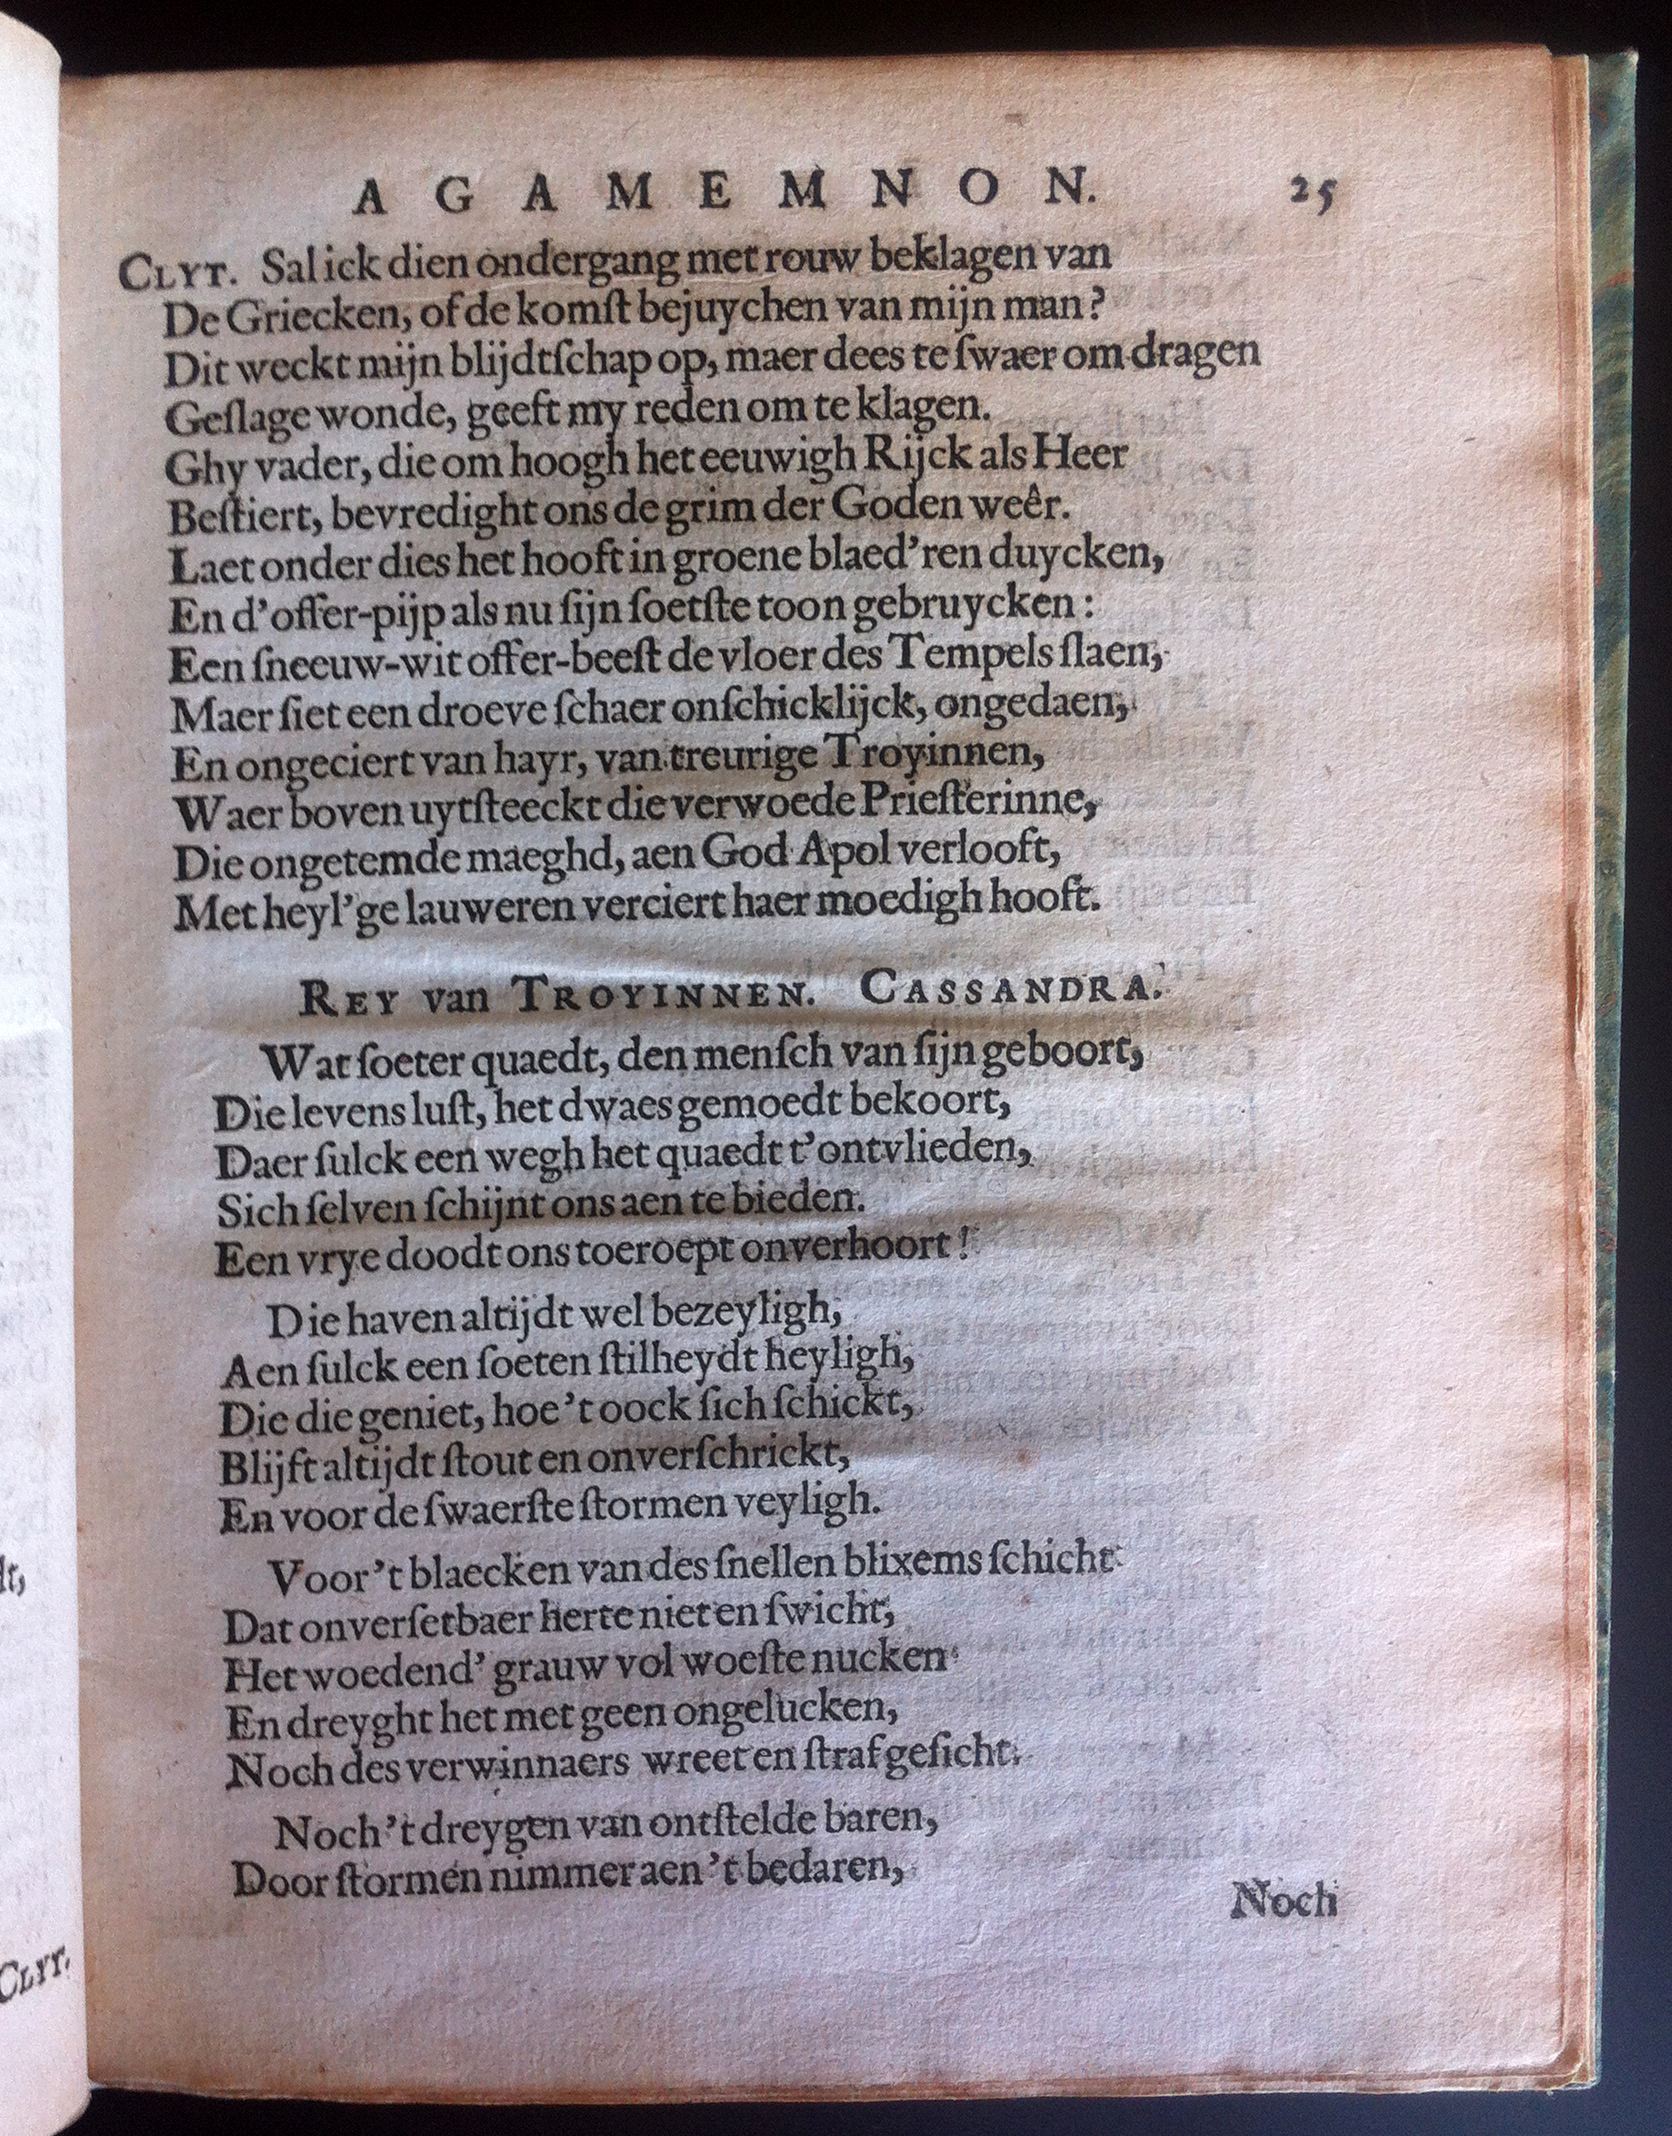 AGAMEMNON. 25
CLYT. Sal ick dien ondergang met rouw beklagen van
De Griecken, of de komſt bejuychen van mijn man?
Dit weckt mijn blijdtſchap op, maer dees te ſwaer om dragen
Geſlage wonde, geeft my reden om te klagen.
Ghy vader, die om hoogh het eeuwigh Rijck als Heer
Beſtiert, bevredight ons de grim der Goden weêr.
Laet onder dies het hooft in groene blaed'ren duycken,
En d'offer-pijp als nu ſijn ſoetſte toon gebruycken:
Een ſneeuw-wit offer-beeſt de vloer des Tempels ſlaen,
Maer ſiet een droeve ſchaer onſchicklijck, ongedaen,
En ongeciert van hayr, van treurige Troyinnen,
Waer boven uytſteeckt die verwoede Prieſterinne,
Die ongetemde maeghd, aen God Apol verlooft,
Met heyl'ge lauweren verciert haer moedigh hooft.
REY van TROYINNEN. CASSANDRA.
Wat ſoeter quaedt, den menſch van ſijn geboort,
Die levens luſt, het dwaes gemoedt bekoort,
Daer ſulck een wegh het quaedt t'ontvlieden,
Sich ſelven ſchijnt ons aen te bieden.
Een vrye doodt ons toeroept onverhoort!
Die haven altijdt wel bezeyligh,
Aen ſulck een ſoeten ſtilheydt heyligh,
Die die geniet, hoe 't oock ſich ſchickt,
Blijft altijdt ſtout en onverſchrickt,
En voor de ſwaerſte ſtormen veyligh.
Voor 't blaecken van des ſnellen blixems ſchicht
Dat onverſetbaer herte niet en ſwicht,
Het woedend' grauw vol woeſte nucken
En dreyght het met geen ongelucken,
Noch des verwinnaers wreet en ſtraf geſicht.
Noch 't dreygen van ontſtelde baren,
Door ſtormen nimmer aen 't bedaren,
Noch
CLYT.